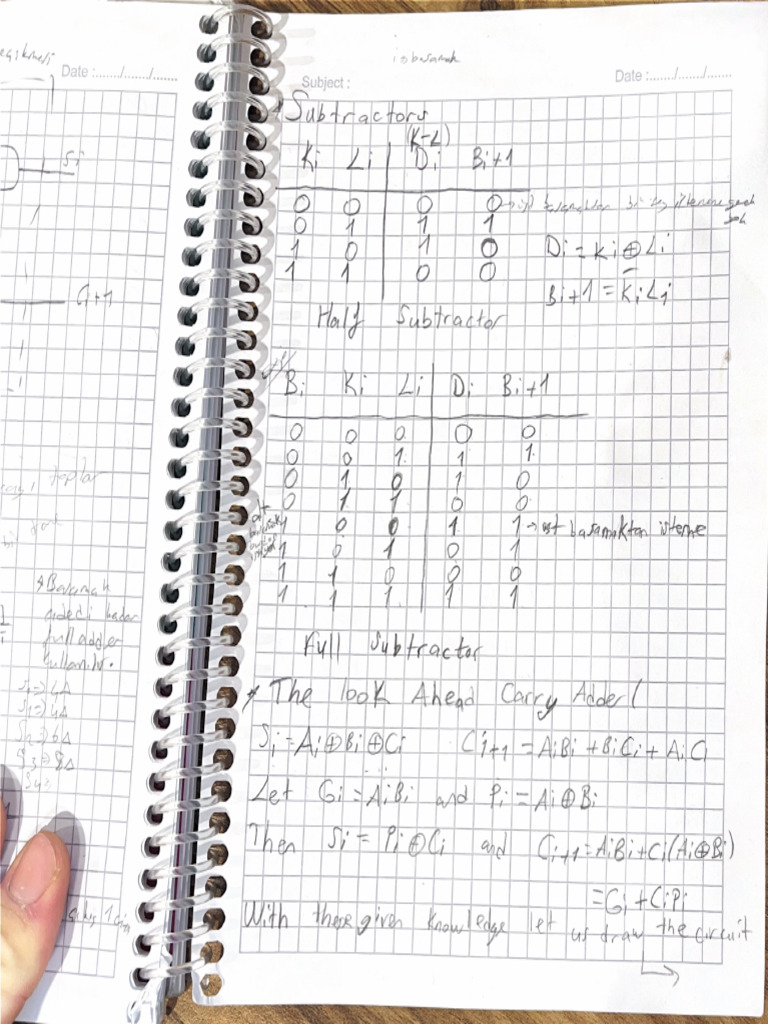 Date :....../....../......
toplar
* Basamak
adedi kadar
full adder
kullanılır.
Subject :
Date :....../....../......
* Subtractors
(K-L)
Ki Li Di Bi+1
0 0 0 0 →
0 1 1 1
1 0 1 0 Di = Ki ⊕ Li
1 1 0 0
Bi+1 = K̅iLi
Half Subtractor
Bi Ki Li Di Bi+1
0 0 0 0 0
0 0 1 1 1
0 1 0 1 0
0 1 1 0 0
1 0 0 1 1 → üst basamaktan isteme
1 0 1 0 1
1 1 0 0 0
1 1 1 1 1
Full Subtractor
* The look Ahead Carry Adder (
Si = Ai⊕Bi⊕Ci Ci+1 = AiBi + BiCi + AiCi
Let Gi = AiBi and Pi = Ai⊕Bi
Then Si = Pi⊕Ci and Ci+1 = AiBi + Ci(Ai⊕Bi)
= Gi + CiPi
With these given knowledge let us draw the circuit